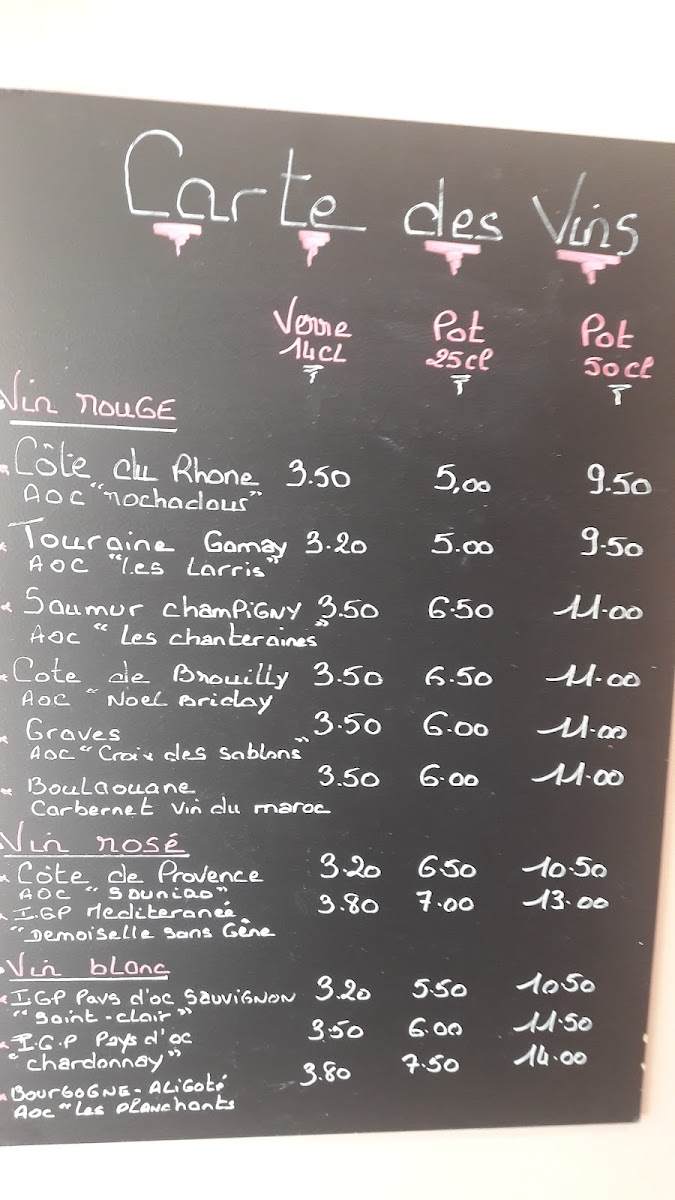 Carte des Vins
Verre Pot Pot
14CL 25cl 50cl
Vin rouge
Côte du Rhone 3.50 5,00 9.50
AOC "rochadous"
Touraine Gamay 3.20 5.00 9.50
AOC "Les Larris"
Saumur champigny 3.50 6.50 11.00
AOC "Les chanteraines"
Cote de Brouilly 3.50 6.50 11.00
AOC "Noel Briday
Graves 3.50 6.00 11.00
AOC "Croix des sablons"
Boulaouane 3.50 6.00 11.00
Carbernet vin du maroc
Vin rosé
Côte de Provence 3.20 6.50 10.50
AOC "Souniao"
I.G.P Mediteranée 3.80 7.00 13.00
"Demoiselle sans Gêne
Vin blanc
IGP Pays d'oc Sauvignon 3.20 5.50 10.50
"Saint-clair"
I.G.P Pays d'oc 3.50 6.00 11.50
"chardonnay"
Bourgogne-Aligoté 3.80 7.50 14.00
AOC "Les Planchants